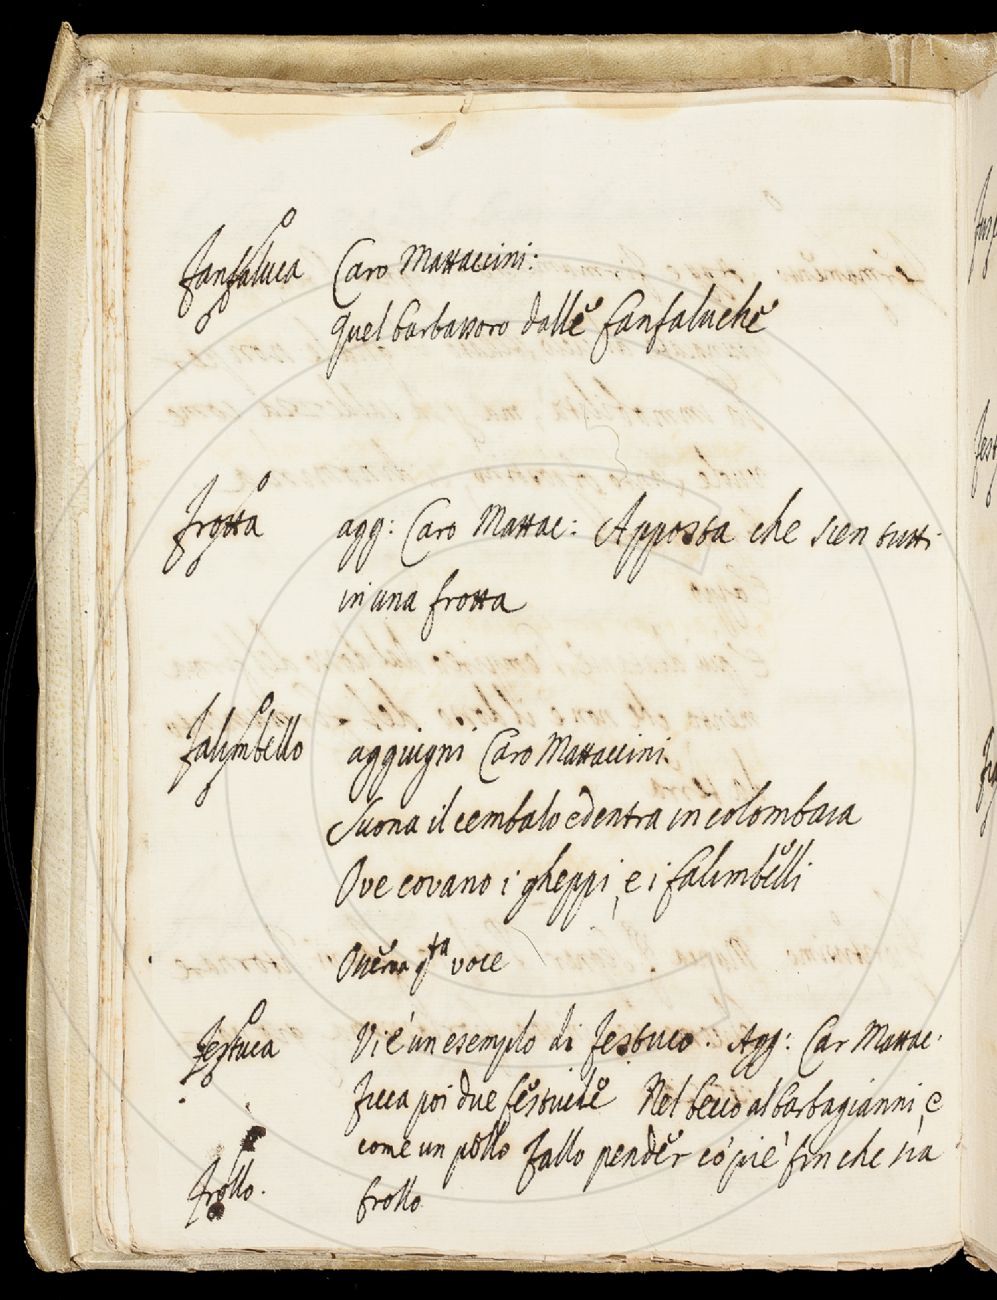 Fanfaluca Caro Mattaccini:
quel barbassoro dallĕ fanfaluchĕ
Frotta agg: Caro Mattac: Apposta che sien tutti
in una frotta
Falimbello aggiugni Caro Mattaccini.
Suona il cembalo ed entra in colombaia
Ove covano i gheppi, e i falimbĕlli
Ossĕrva q.ta voce
Festuca Vi é un esemplo di Festuco. Agg: Car Mattac.
Ficca poi due fĕstuchĕ Nel becco al barbagianni, e
come un pollo Fallo pendĕr có pié fin che sia
Frollo. frollo